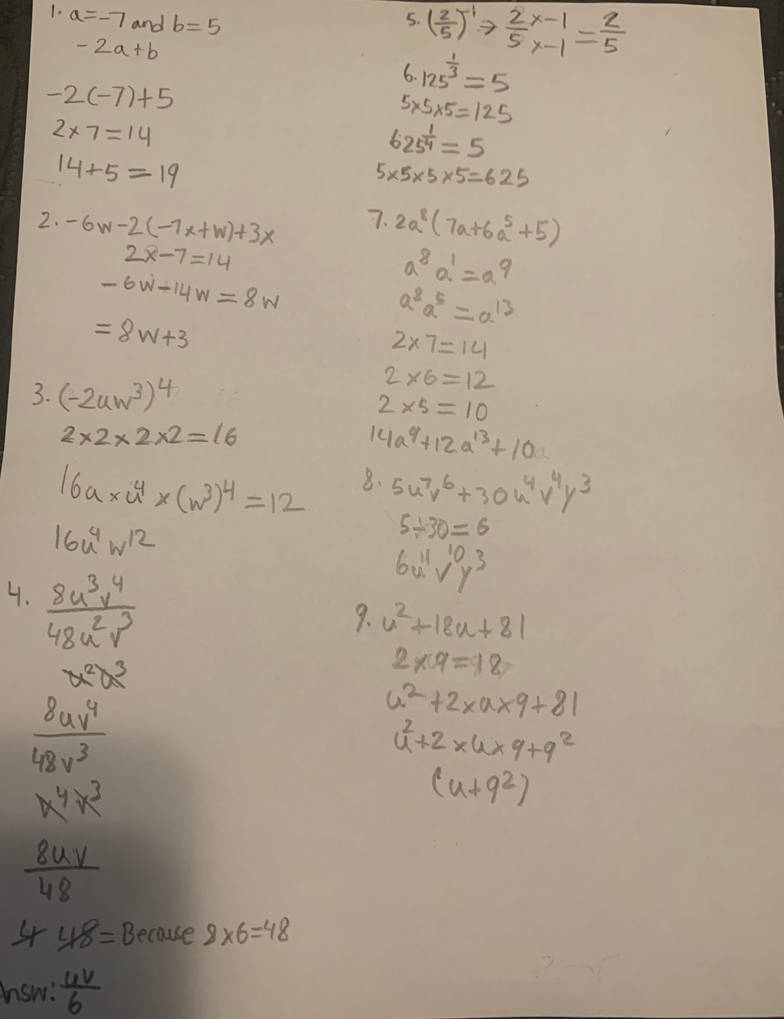 1. a=-7 and b=5
-2a+b
-2(-7)+5
2×7=14
14+5=19
2. -6w-2(-7x+w)+3x
2x-7=14
-6w-14w=8w
=8w+3
3. (-2uw³)⁴
2×2×2×2=16
16a×u⁴×(w³)⁴=12
16u⁴w12
4. 8u³v⁴
48u²v³
u²u³
8uv⁴
48v³
v⁴v³
8uv
48
4 48=Because 8×6=48
Answ: uv
6
5. (2/5)⁻¹ → 2×-1/5×-1 = 2/5
6. 125^1/3=5
5×5×5=125
625^1/4=5
5×5×5×5=625
7. 2a⁸(7a+6a⁵+5)
a⁸a¹=a⁹
a⁸a⁵=a¹³
2×7=14
2×6=12
2×5=10
14a⁹+12a¹³+10a
8. 5u⁷v⁶+30u⁴v⁴y³
5÷30=6
6u¹¹v¹⁰y³
9. u²+18u+81
2×9=18
u²+2×u×9+81
u²+2×u×9+9²
(u+9²)